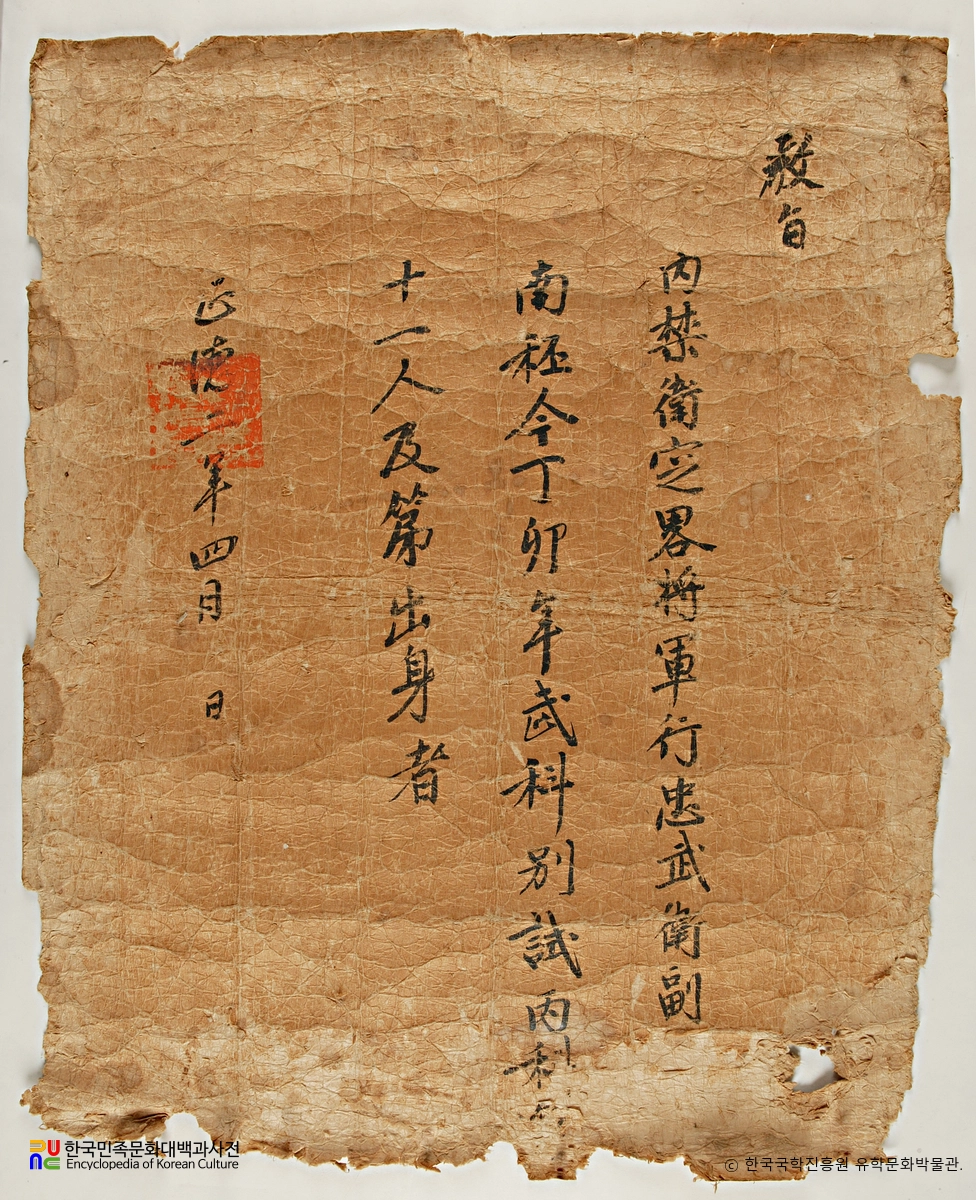 敎旨
內禁衛定畧將軍行忠武衛副
南秠今丁卯年武科別試丙科
十一人及第出身者
正德二年四月 日
한국민족문화대백과사전
Encyclopedia of Korean Culture
© 한국국학진흥원 유학문화박물관.